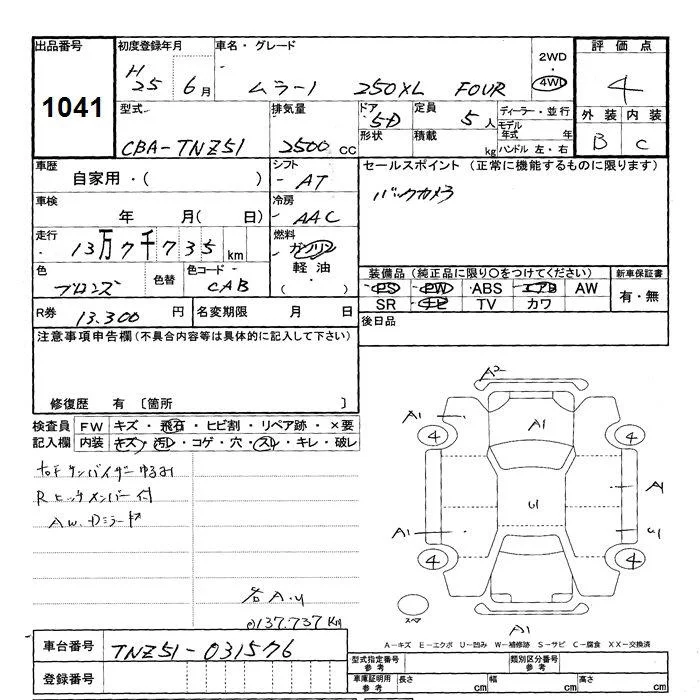 出品番号 初度登録年月 車名・グレード 2WD・4WD 評価点
1041 H25年 6月 ムラーノ 250XL FOUR 4
型式 排気量 ドア 5D 定員 5人 ディーラー・並行 外装 内装
CBA-TNZ51 2500cc 形状 積載 kg モデル年式 年 B C
ハンドル 左・右
車歴 シフト セールスポイント (正常に機能するものに限ります)
自家用・( ) AT バックカメラ
車検 年 月( 日) 冷房 AAC
走行 13万7千735km 燃料 ガソリン
軽油・( )
色 ブロンズ 色替 色コード CAB
装備品 (純正品に限り〇をつけてください) 新車保証書
PS PW ABS エアB AW 有・無
SR ナビ TV カワ
R券 13.300円 名変期限 月 日 後日品
注意事項申告欄 (不具合内容等は具体的に記入して下さい)
修復歴 有 〔箇所 〕
検査員記入欄 FW キズ・飛石・ヒビ割・リペア跡・×要
内装 キズ・汚レ・コゲ・穴・スレ・キレ・破レ
右Fサンバイザーゆるみ
Rヒッチメンバー付
AW.Dミラーキズ
各A.U
137.737Km
A2
A1 A1
4 4
U1 A1
A1 U1
4 4
スペア A1
A-キズ E-エクボ U-凹み W-補修跡 S-サビ C-腐食 XX-交換済
車台番号 TNZ51-031576
登録番号
型式指定番号参考 類別区分番号参考
車庫証明用参考 長さ cm 幅 cm 高さ cm